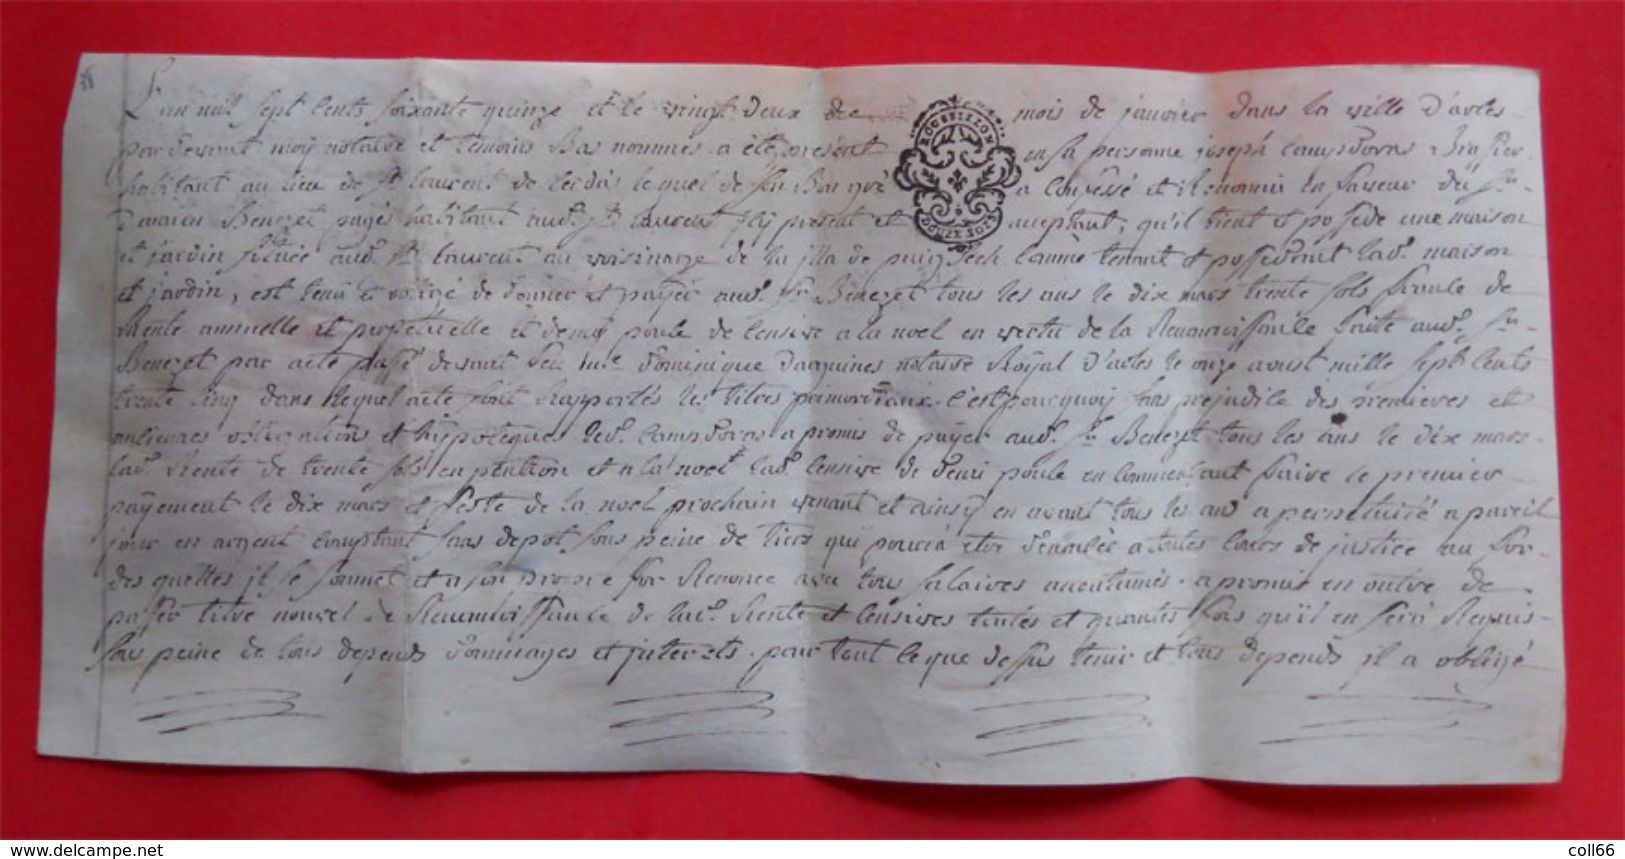 38
L'an mil sept cents soixante quinze et le vingt deux du mois de janvier dans la ville d'arles
ROUSSILLON
DOUZE SOLS
pardevant moy notaire et temoins Bas nommés a été present en sa personne joseph campdoras Brassier
habitant au lieu de st laurent de cerdas lequel de son Bon gré a confessé et Reconnu en faveur du sr
Benezet pagés habitant aud. st laurent icy present et acceptant, qu'il tient et possede une maison
et jardin située aud. st laurent au voisinage de la de puig comme tenant et possedant lad. maison
et jardin, est tenu et obligé de donner et payer aud. sr Benezet tous les ans le dix mars trente sols de
Rente annuelle et perpetuelle et demy poule de censive a la noel en vertu de la Reconnoissance faite aud. sr
Benezet par acte passé devant feu me dominique notaire Royal d'arles le onze aoust mille sept cents
trente cinq dans lequel acte sont Rapportés les titres primordiaux. c'est pourquoy sans prejudice des premieres et
obligations et hypoteques led. campdoras a promis de payer aud. sr Benezet tous les ans le dix mars
lad. Rente de trente sols en pention et a la noel lad. censive de demi poule en commencant faire le premier
payement le dix mars et feste de la noel prochain venant et ainsy en avant tous les ans a perpetuité a pareil
jour en argent comptant sans depot, sous peine de tiers qui pourra etre a toutes cours de justice au for
des quelles il se soumet et a son propre for Renonce avec tous salaires acoutumés. a promis en outre de
passer titre nouvel de Reconnoissance de lad. Rente et censives toutes et quantes fois qu'il en sera Requis
sous peine de tous depends dommages et interets. pour tout ce que dessus tenir et tous depends il a obligé
coll66